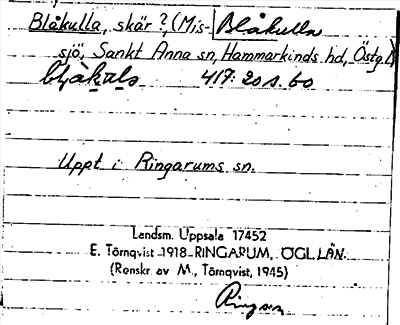 Blåkulla, skär?, (Mis- Blåkulla
sjö, Sankt Anna sn, Hammarkinds hd, Östg.l)
417: 20 s. 60
Uppt i Ringarums sn.
Landsm. Uppsala 17452
E. Törnqvist 1918 RINGARUM, ÖGL. LÄN.
(Renskr. av M. Törnqvist, 1945)